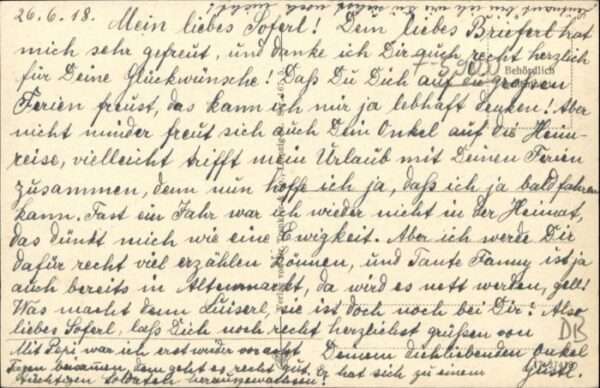 26.6.18. Mein liebes Soferl! Dein liebes Brieferl hat
mich sehr gefreut, und danke ich Dir auch recht herzlich
für Deine Glückwünsche! Daß Du Dich auf die großen
Behördlich
Ferien freust, das kann ich mir ja lebhaft denken! Aber
nicht minder freut sich auch Dein Onkel auf die Heim-
reise, vielleicht trifft mein Urlaub mit Deinen Ferien
zusammen, denn nun hoffe ich ja, daß ich ja bald fahren
kann. Fast ein Jahr war ich wieder nicht in der Heimat,
das dünkt mich wie eine Ewigkeit. Aber ich werde Dir
dafür recht viel erzählen können, und Tante Fanny ist ja
auch bereits in Altenmarkt, da wird es nett werden, gell!
Was macht denn Luiserl, sie ist doch noch bei Dir? Also
liebes Soferl, laß Dich noch recht herzlichst grüßen von
Deinem dichliebenden Onkel
Mit Pepi war ich erst wieder vor acht
Tagen beisammen, dem geht es recht gut. Er hat sich zu einem
tüchtigen Soldaten herausgewachsen!
DB